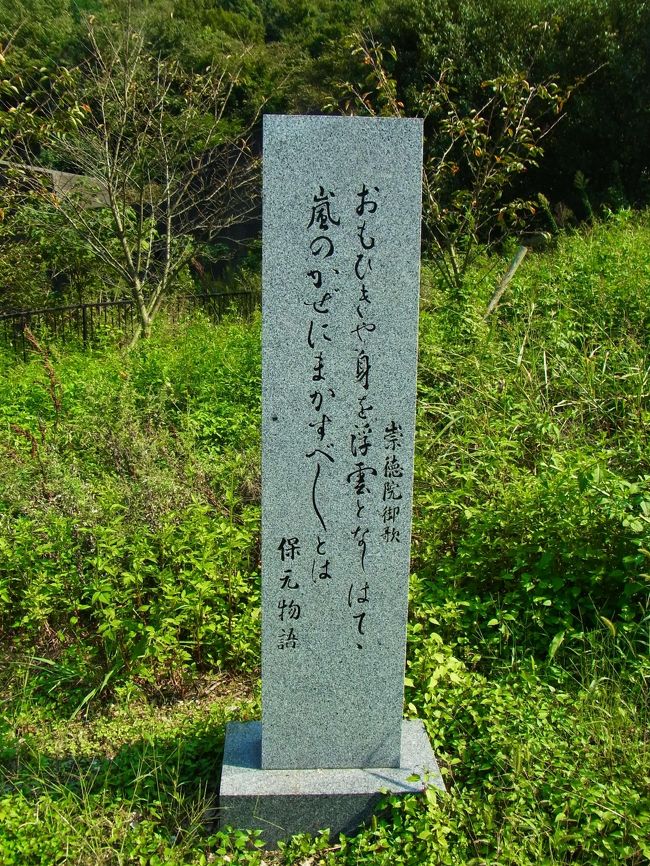 崇徳院御歌
おもひきや身を浮雲となしはてゝ
嵐のかぜにまかすべしとは
保元物語